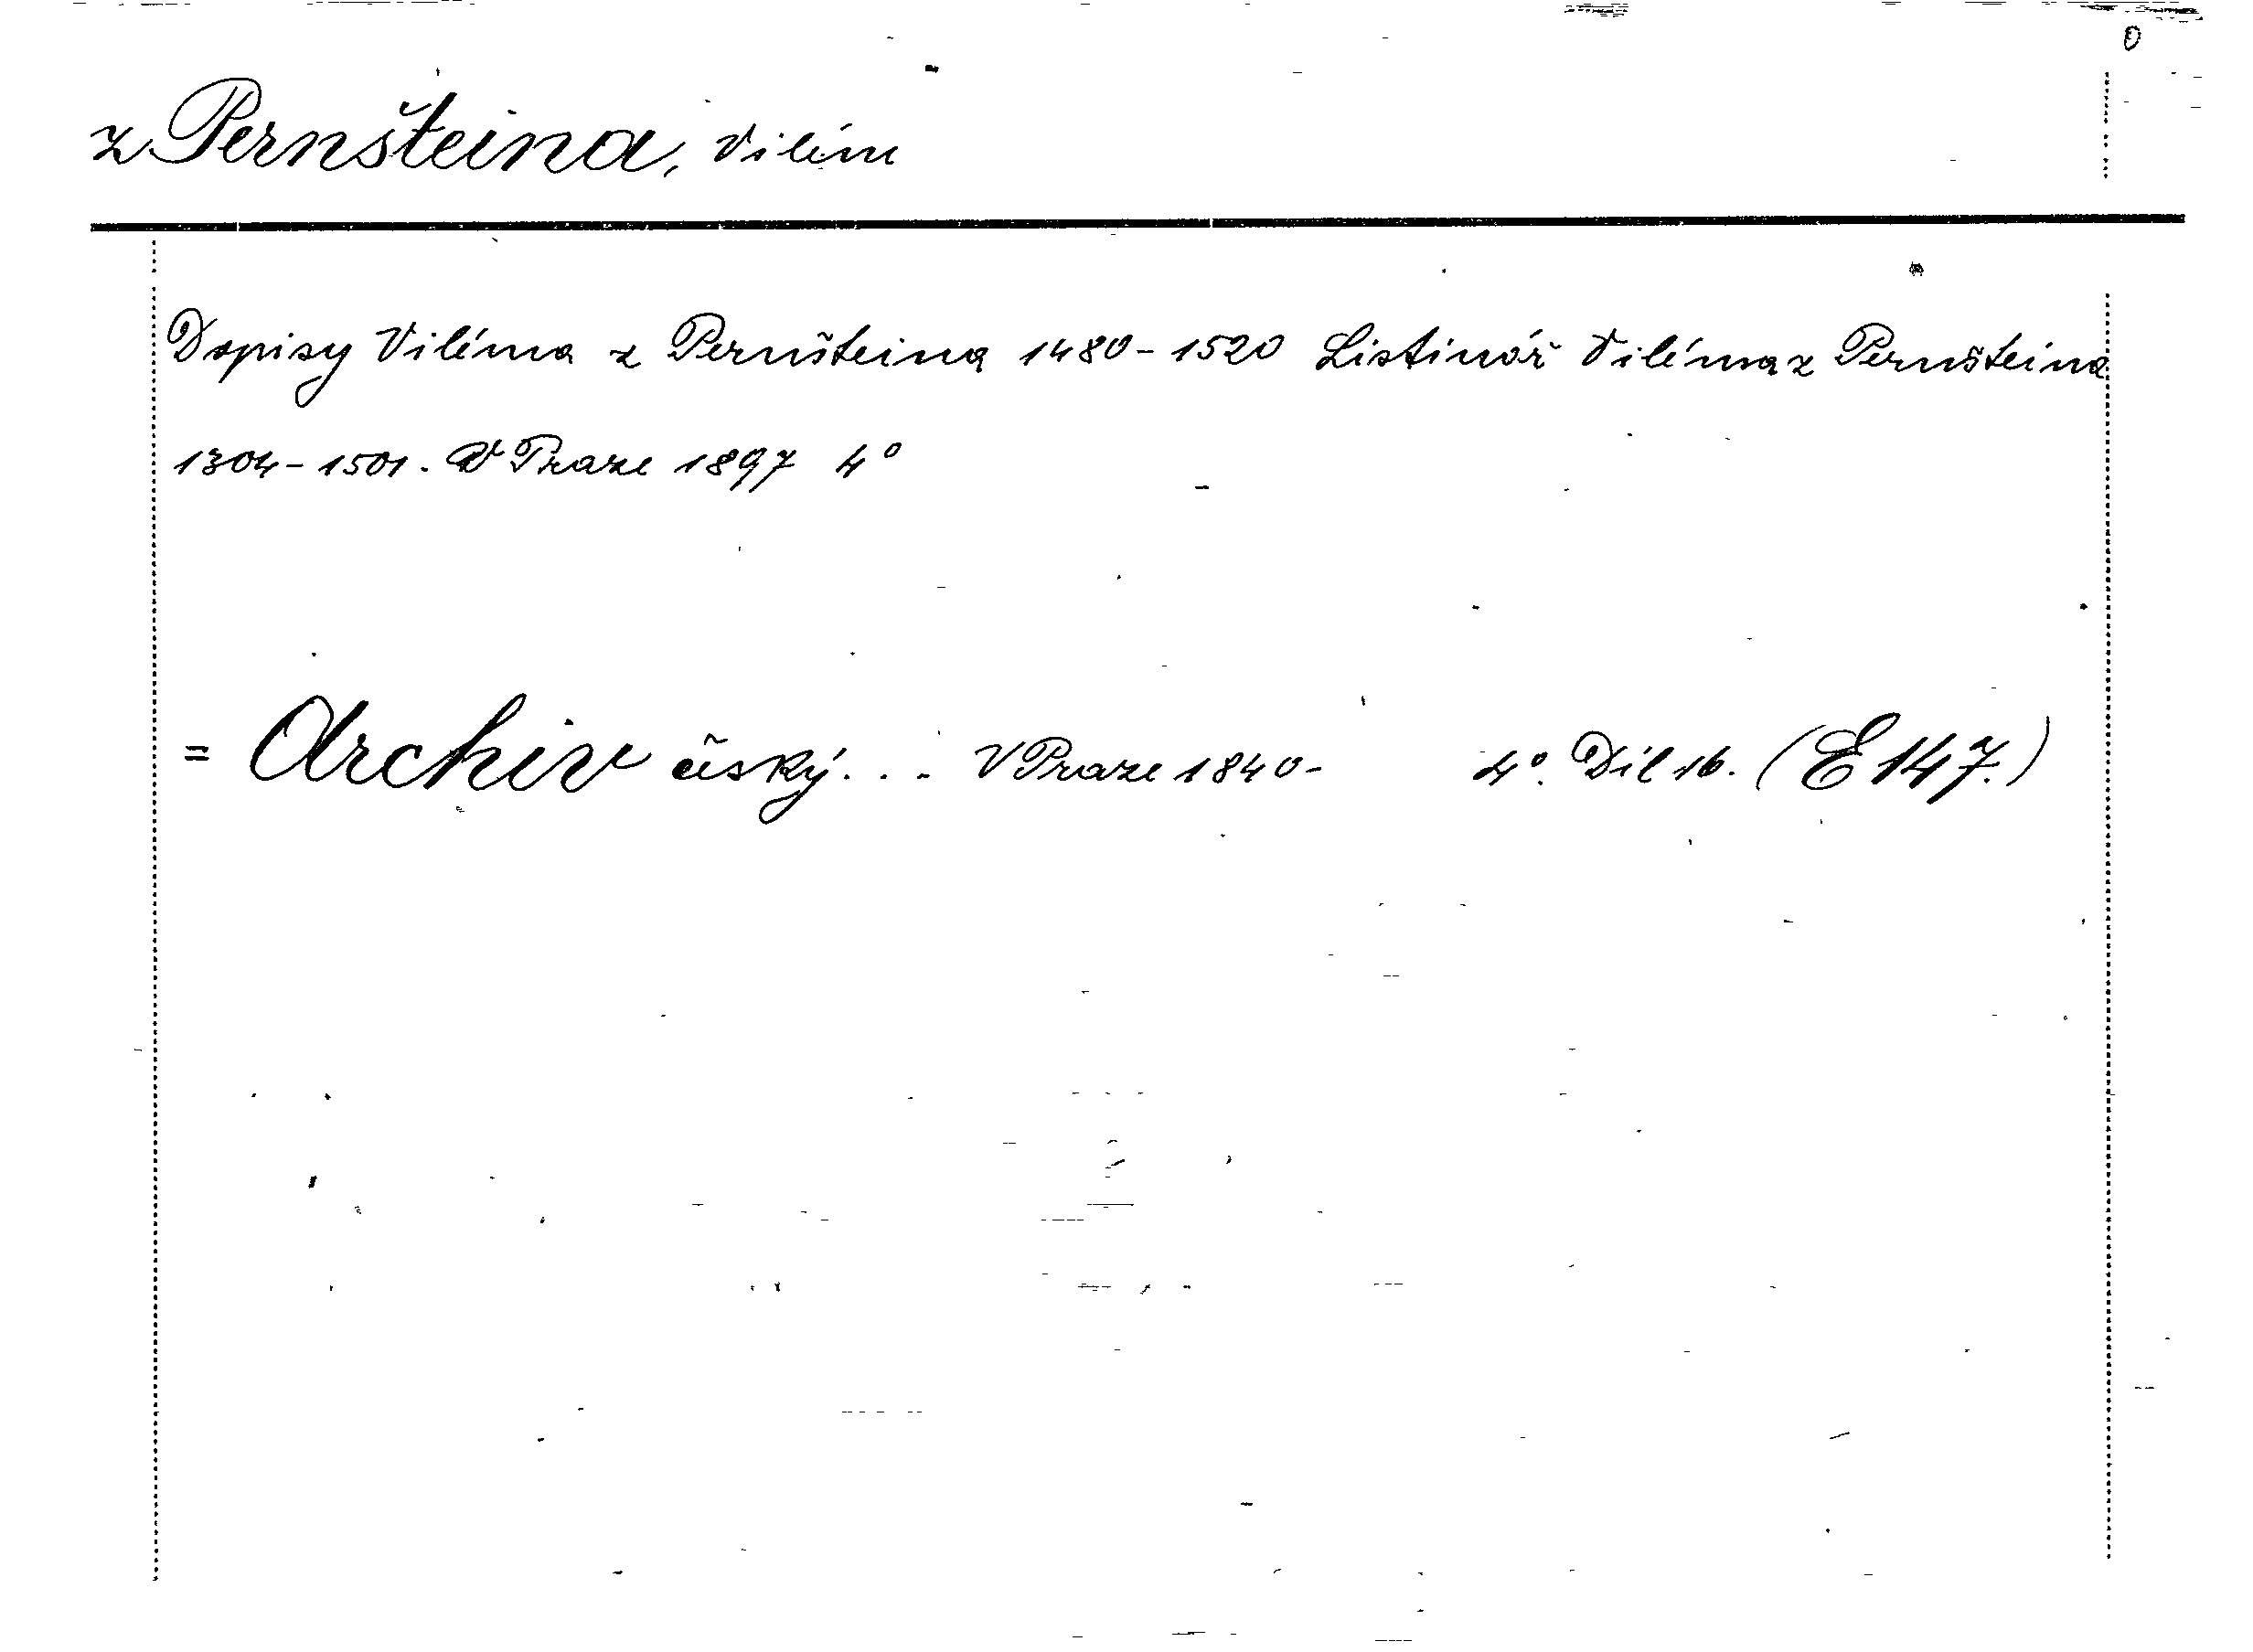 z Pernšteina, Vilém
Dopisy Viléma z Pernšteina 1480-1520 Listinář Viléma z Pernšteina
1304-1501. V Praze 1897 4°
= Archiv český... V Praze 1840- 4°. Díl 16. (E 147.)